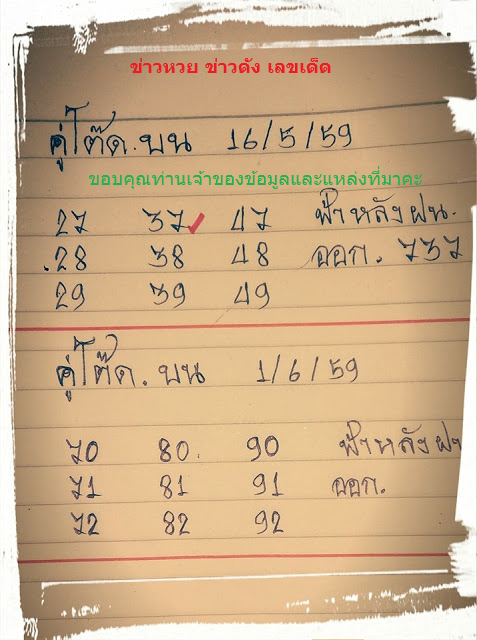 ข่าวหวย ข่าวดัง เลขเด็ด
คู่โต๊ด.บน 16/5/59
ขอบคุณท่านเจ้าของข้อมูลและแหล่งที่มาคะ
27 37 47 ฟ้าหลังฝน.
.28 38 48 ออก. 737
29 39 49
คู่โต๊ด.บน 1/6/59
70 80. 90 ฟ้าหลังฝน
71 81 91 ออก.
72 82 92